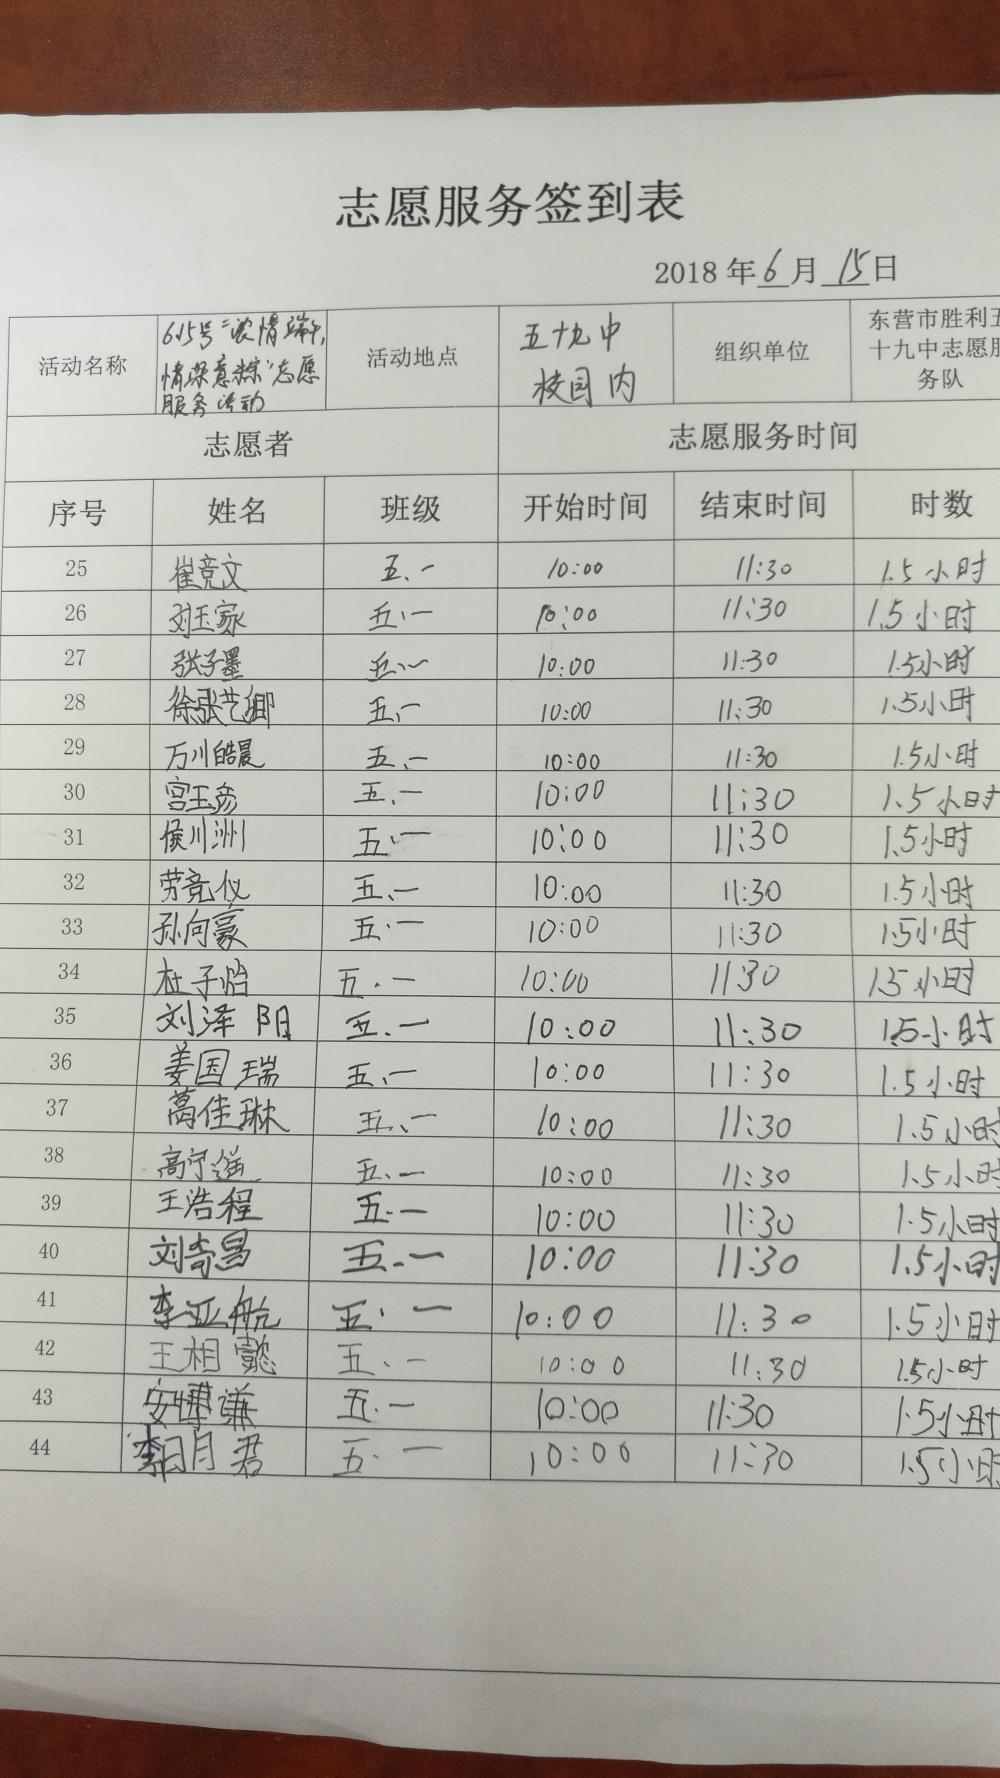 志愿服务签到表
2018 年 6 月 15 日
活动名称 6.15号"浓情端午,情深意粽"志愿服务活动 活动地点 五十九中校园内 组织单位 东营市胜利五十九中志愿服务队
志愿者 志愿服务时间
序号 姓名 班级 开始时间 结束时间 时数
25 崔竞文 五.一 10:00 11:30 1.5小时
26 刘玉家 五.一 10:00 11:30 1.5小时
27 张子墨 五.一 10:00 11:30 1.5小时
28 徐张艺卿 五.一 10:00 11:30 1.5小时
29 万川皓晨 五.一 10:00 11:30 1.5小时
30 宫玉彦 五.一 10:00 11:30 1.5小时
31 侯川洲 五.一 10:00 11:30 1.5小时
32 劳竞仪 五.一 10:00 11:30 1.5小时
33 孙向豪 五.一 10:00 11:30 1.5小时
34 杜子怡 五.一 10:00 11:30 1.5小时
35 刘泽阳 五.一 10:00 11:30 1.5小时
36 姜国瑞 五.一 10:00 11:30 1.5小时
37 葛佳琳 五.一 10:00 11:30 1.5小时
38 高宁遥 五.一 10:00 11:30 1.5小时
39 王浩程 五.一 10:00 11:30 1.5小时
40 刘奇昌 五.一 10:00 11:30 1.5小时
41 李亚航 五.一 10:00 11:30 1.5小时
42 王相懿 五.一 10:00 11:30 1.5小时
43 安博谦 五.一 10:00 11:30 1.5小时
44 李明君 五.一 10:00 11:30 1.5小时